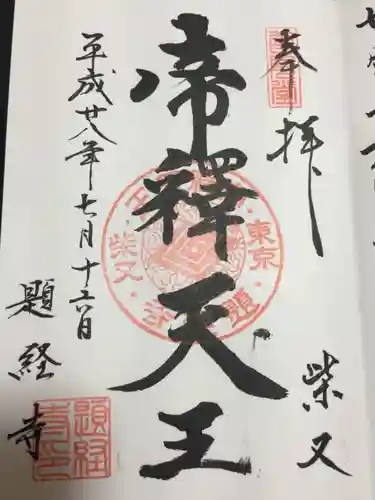 奉拝
柴又
帝釋天王
平成廿八年七月十六日
題経寺
東京
柴又
題経
寺印